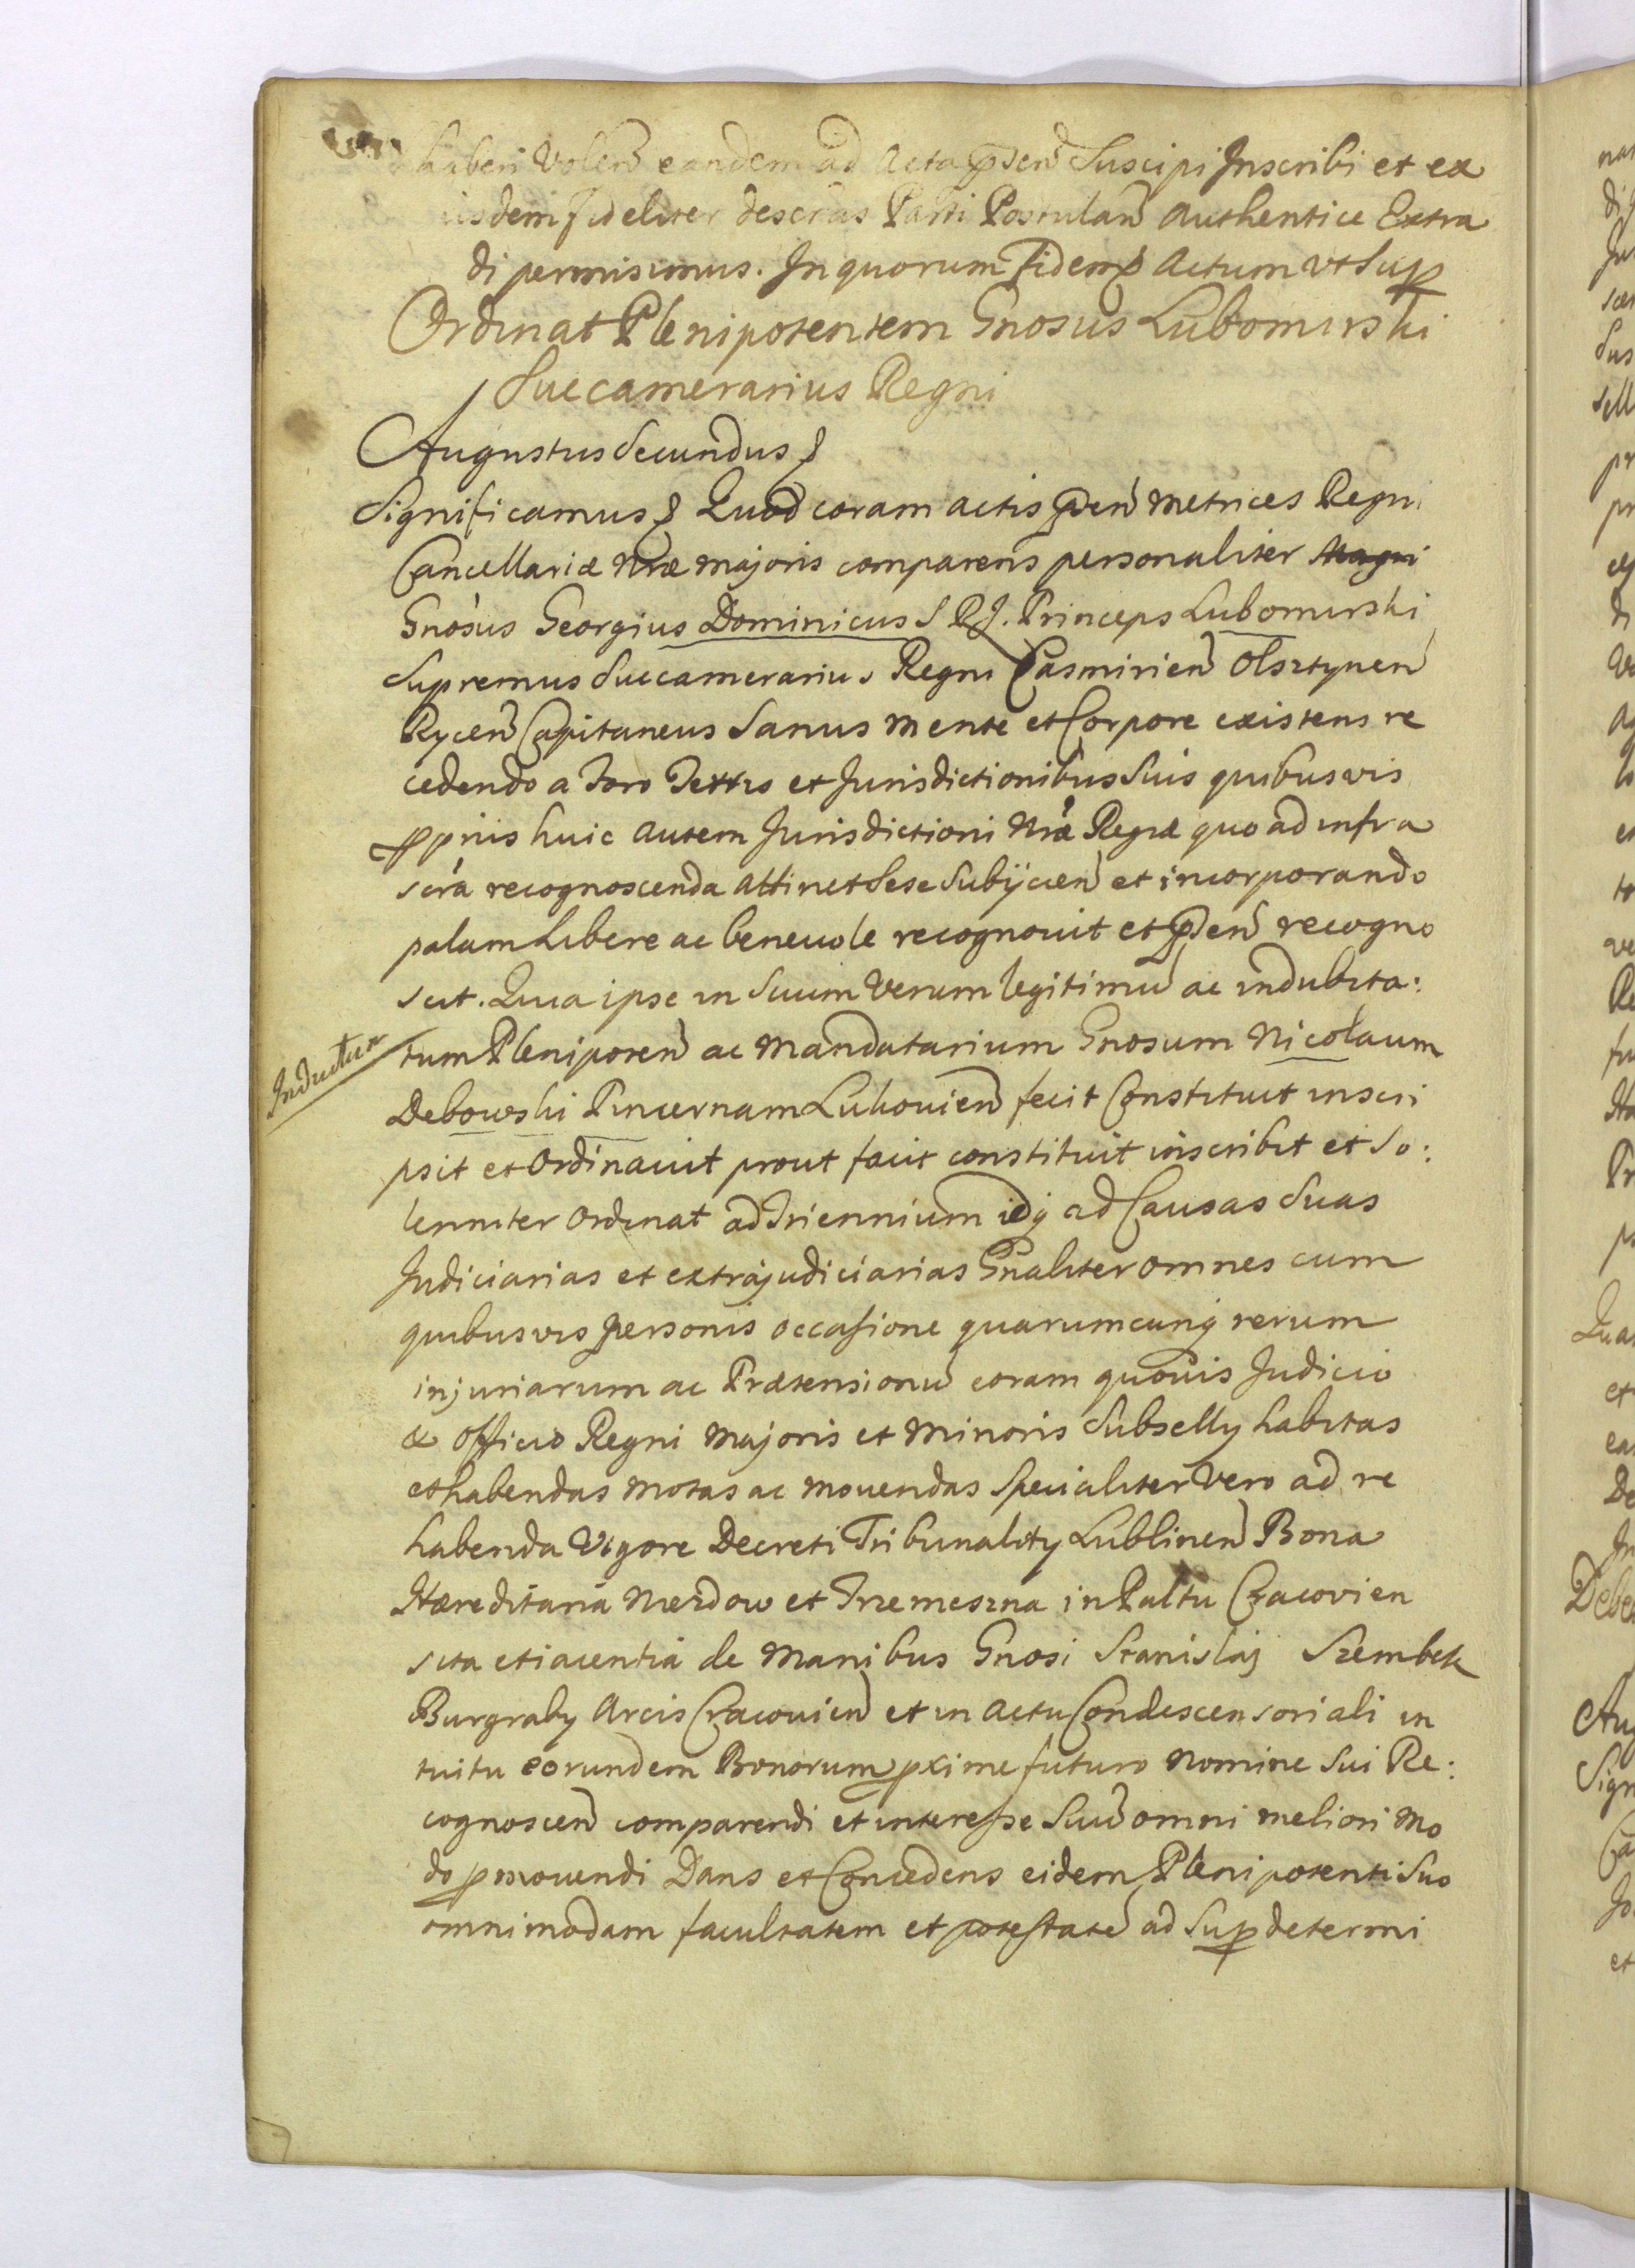 haberi Volen eandem ad Acta pñsen Suscipi Inscribi et ex
iisdem fideliter descriis Parti Postulan authentice Extra
di permisimus. In quorum fidem & Actum ut Sup
Ordinat Plenipotentem Gnosus Lubomirski
Succamerarius Regni
Augustus Secundus &
Significamus & Quod coram actis pñsen Metrices Regni
Cancellariæ Nræ majoris comparens personaliter Magni
Gnosus Georgius Dominicus S R J. Princeps Lubomirski
Supremus Succamerarius Regni Casmirien Olsztynen
Rycen Capitaneus Sanus mente et Corpore existens re
cedendo a foro Terrio et Jurisdictionibus Suis quibusvis
pprijs huic autem Jurisdictioni Nræ Regiæ quo ad infra
scra recognoscenda attinet Sese Subijcien et incorporando
palam Libere ac beneuole recognouit et pñsen recogno
scit. Quia ipse in Suum Verum legitimu ac indubita:
Inductur
tum Plenipoten ac Mandatarium Gnosum Nicolaum
Debowski Pincernam Lukouien fecit Constituit inscri
psit et Ordinauit prout facit constituit inscribit et So:
lenniter Ordinat ad Triennium idq ad Causas Suas
Judiciarias et extrajudiciarias Gnaliter omnes cum
quibusvis personis occasione quarumcunq rerum
injuriarum ac Prætensionu coram quovis Judicio
& Officio Regni Majoris et Minoris Subselly habitas
et habendas motas ac mouendas Specialiter Vero ad re
habenda Vigore Decreti Tribunality Lublinen Bona
Hæreditaria Niezdow et Trzemeszna in Paltu Cracovien
sita et iacentia de Manibus Gnosi Stanislaj Szembek
Burgraby Arcis Cracouien et in actu Condescensoriali in
tuitu eorundem Bonorum pxime futuro Nomine Sui Re:
cognoscen comparendi et interesse Suu omni meliori Mo
do pmouendi Dans et Concedens eidem Plenipotenti Suo
omnimodam facultatem et potestate ad Sup determi